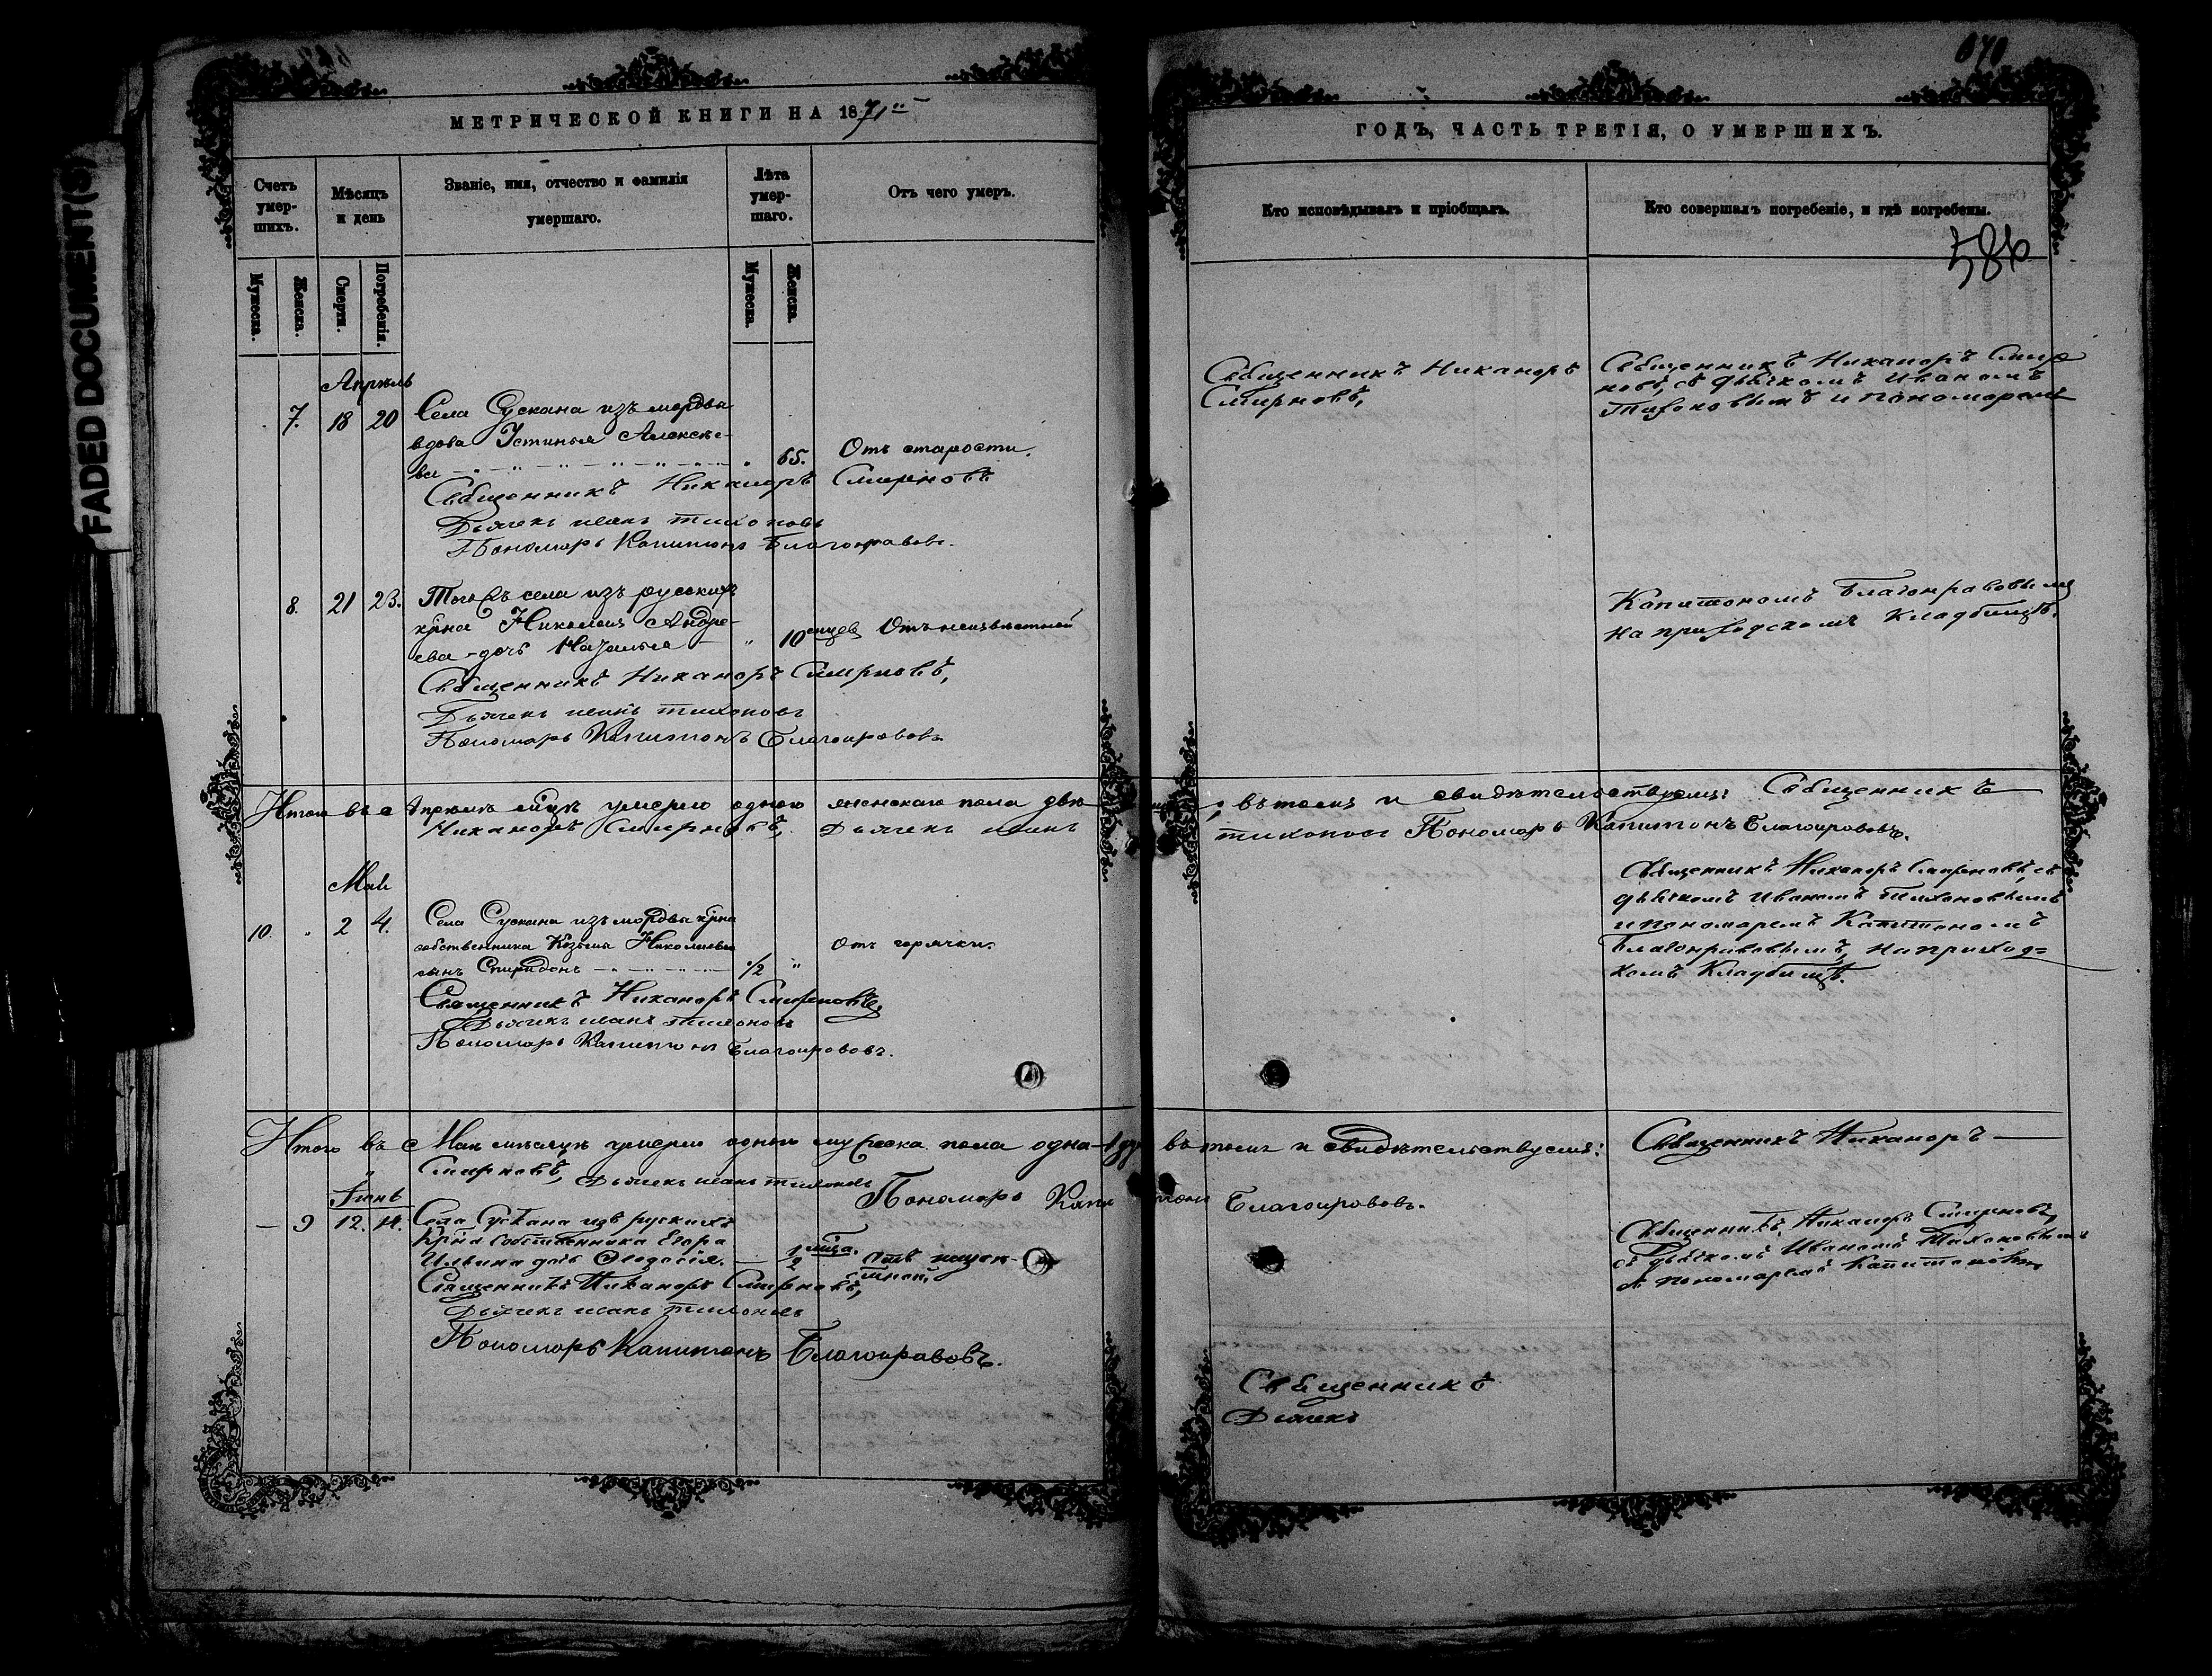 FADED DOCUMENT(S)
МЕТРИЧЕСКОЙ КНИГИ НА 1871
Счетъ умер-шихъ.
Мѣсяцъ и день
Званіе, имя, отчество и фамилія умершаго.
Лѣта умер-шаго.
Отъ чего умеръ.
Мужеска.
Женска.
Смерти.
Погребенія.
Мужеска.
Женска.
Апрѣль
7. 18 20 Села Сускана изъ мордвы
вдова Устинья Алексѣе-
ва 65. Отъ старости.
Священникъ Никаноръ Смирновъ
Дьячекъ Иванъ Тихоновъ
Пономарь Капитонъ Благонравовъ.
8. 21 23. Тогожъ села изъ русскихъ
крна Николая Андре-
ева дочь Наталья 10 Отъ неизвѣстной
Священникъ Никаноръ Смирновъ,
Дьячекъ Иванъ Тихоновъ
Пономарь Капитонъ Благонравовъ
Итого въ Апрѣлѣ мцѣ умерло одного женскаго пола двѣ
Никаноръ Смирновъ, Дьячекъ Иванъ
Май
10. 2 4. Села Сускана изъ мордвы крна
собственника Козьмы Николаева
сынъ Спиридонъ 1/2 Отъ горячки.
Священникъ Никаноръ Смирновъ
Дьячекъ Иванъ Тихоновъ
Пономарь Капитонъ Благонравовъ.
Итого въ Маѣ мѣсяцѣ умерло одного мужеска пола одна
Смирновъ, Дьячекъ Иванъ Тихоновъ Пономарь Капи
Іюнь
9 12. 14. Села Сускана изъ рускихъ
крна собственника Егора
Ильина дочь Ѳеодосія. 1/2 мца. Отъ
Священникъ Никаноръ Смирновъ,
Дьячекъ Иванъ Тихоновъ
Пономарь Капитонъ Благонравовъ.
ГОДЪ, ЧАСТЬ ТРЕТІЯ, О УМЕРШИХЪ.
Кто исповѣдывалъ и пріобщалъ.
Кто совершалъ погребеніе, и гдѣ погребены.
586
Священникъ Никаноръ
Смирновъ,
Священникъ Никаноръ Смир
новъ, съ дьячкомъ Иваномъ
Тихоновымъ и пономаремъ
Капитономъ Благонравовымъ
на приходскомъ кладбищѣ.
въ томъ и свидѣтельствуемъ: Священникъ
Тихоновъ Пономарь Капитонъ Благонравовъ.
Священникъ Никаноръ Смирновъ, съ
дьячкомъ Иваномъ Тихоновымъ
и пономаремъ Капитономъ
Благонравовымъ, на приход-
комъ кладбищѣ.
въ томъ и свидѣтельствуемъ: Священникъ Никаноръ
тонъ Благонравовъ.
Священникъ Никаноръ Смирновъ,
съ дьячкомъ Иваномъ Тихоновымъ
и пономаремъ Капитономъ
Священникъ
Дьячекъ